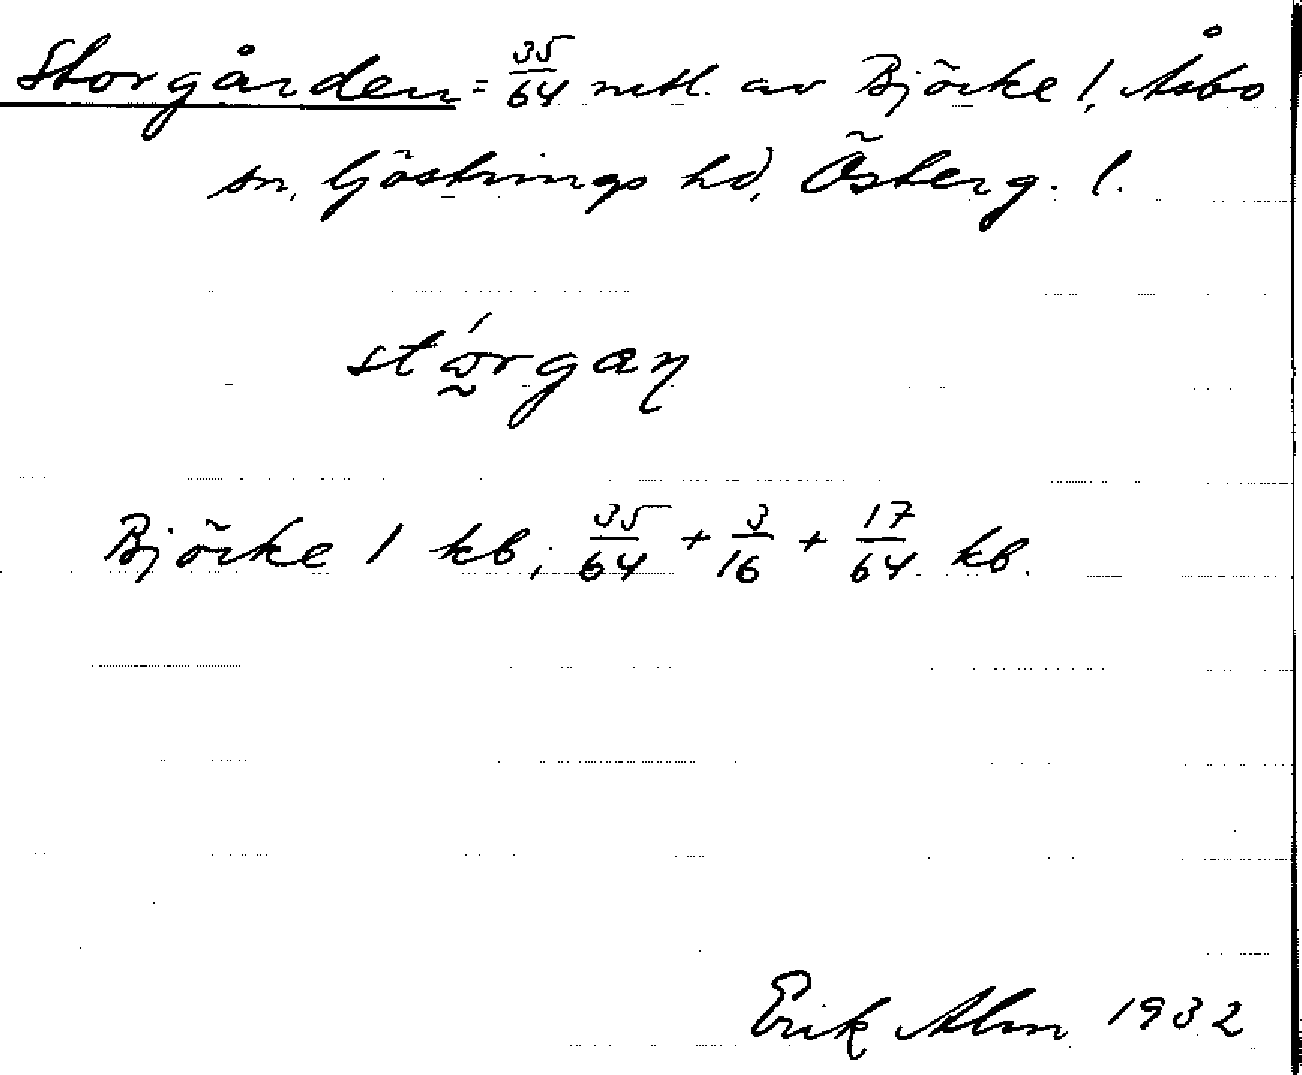 Storgården = 35/64 mtl. av Björke 1, Åsbo
sn, Göstrings hd, Österg. l.
stǫ́rgaṇ
Björke 1 kb; 35/64 + 3/16 + 17/64 kb.
Erik Alm 1932